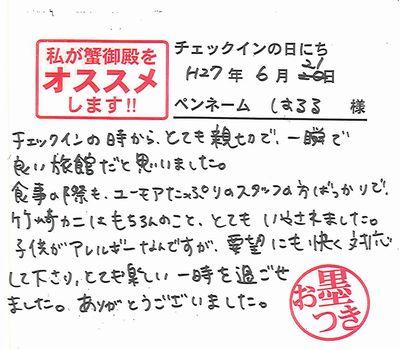 私が蟹御殿を
オススメ
します!!
チェックインの日にち
H27年 6月 21日
ペンネーム はるる 様
チェックインの時から、とても親切で、一瞬で
良い旅館だと思いました。
食事の際も、ユーモアたっぷりのスタッフの方ばっかりで、
竹崎カニはもちろんのこと、とてもいやされました。
子供がアレルギーなんですが、要望にも快く対応
して下さり、とても楽しい一時を過ごせ
ました。ありがとうございました。
お墨つき